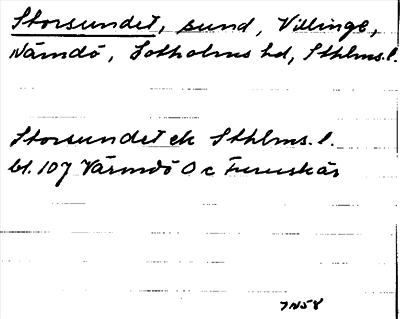 Storsundet, sund, Villinge,
Nämdö, Sotholms hd, Sthlms. l.
Storsundet ek Sthlms. l.
bl. 107 Värmdö O c Furuskär
7N58